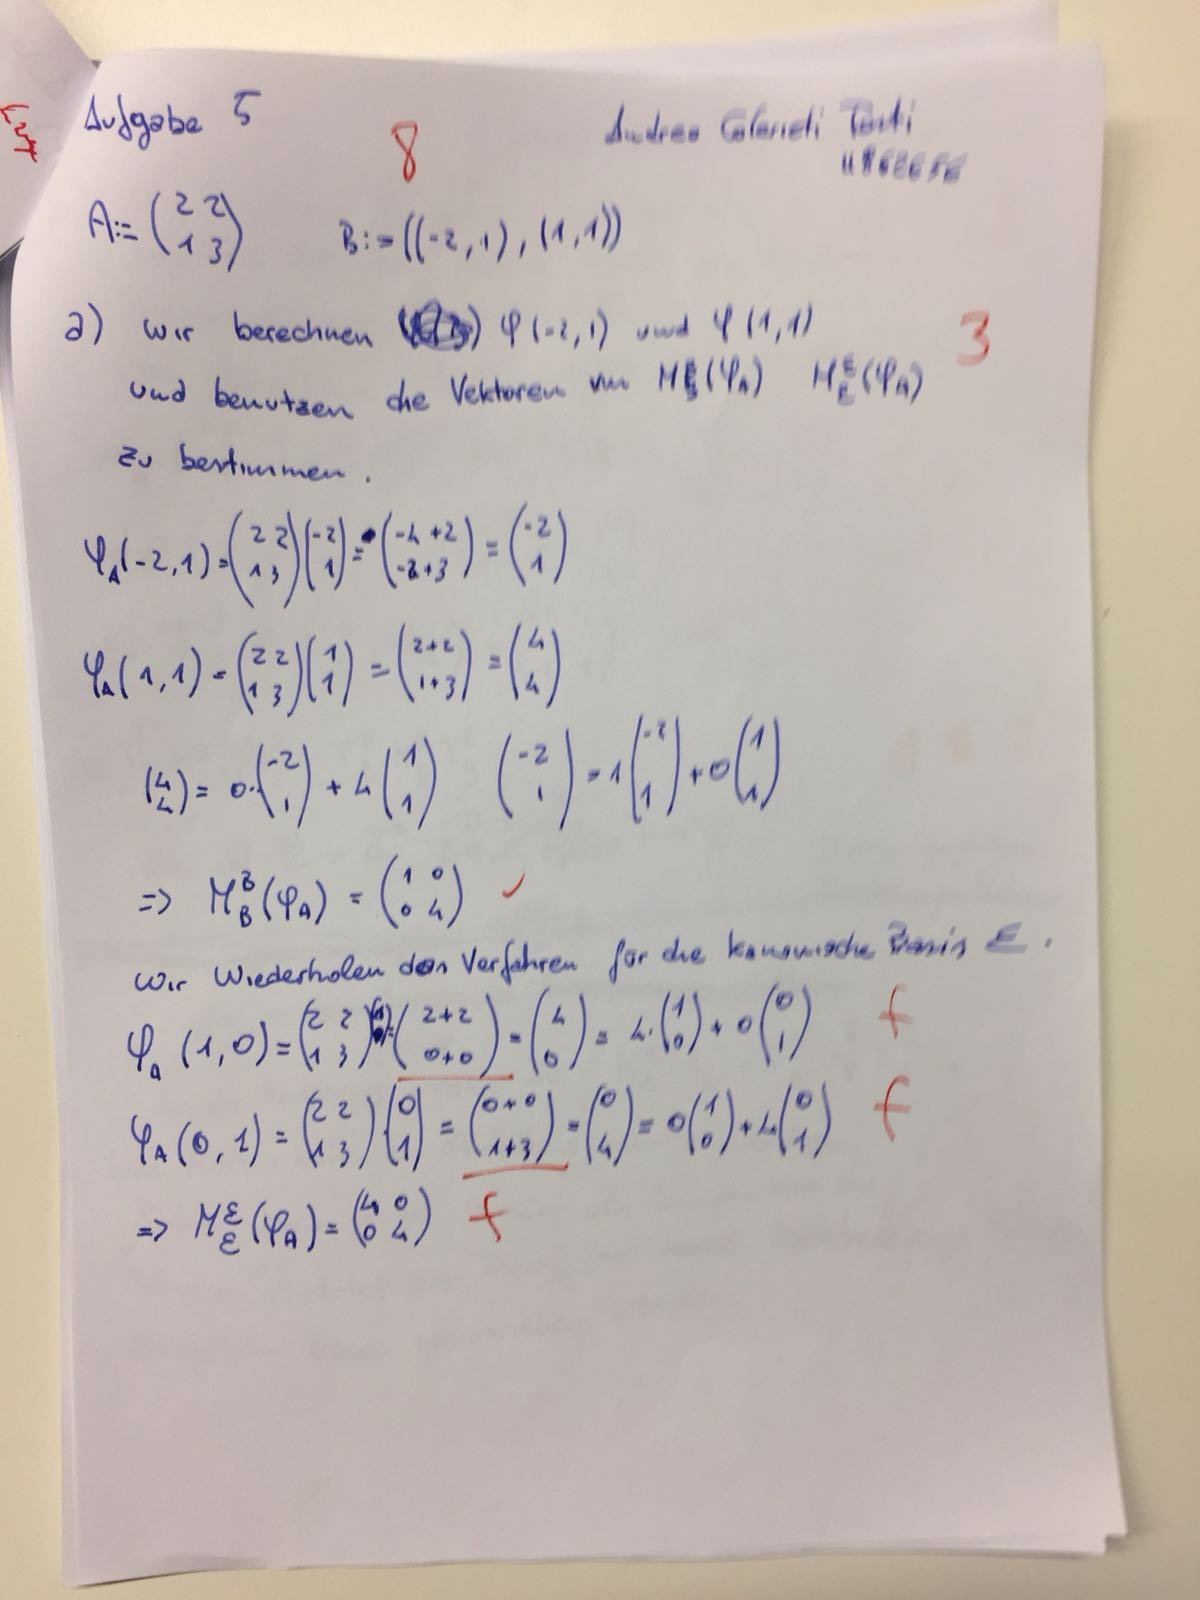 Aufgabe 5
8
Andrea
A:= (2 2; 1 3) B:= ((-2,1), (1,1))
a) wir berechnen φ(-2,1) und φ(1,1) 3
und benutzen die Vektoren um M_B^B(φ_A) M_E^E(φ_A)
zu bestimmen.
φ_A(-2,1) = (2 2; 1 3)(-2; 1) = (-4+2; -2+3) = (-2; 1)
φ_A(1,1) = (2 2; 1 3)(1; 1) = (2+2; 1+3) = (4; 4)
(4; 4) = 0·(-2; 1) + 4(1; 1) (-2; 1) = 1(-2; 1) + 0(1; 1)
=> M_B^B(φ_A) = (1 0; 0 4) ✓
wir wiederholen das Verfahren für die kanonische Basis E.
φ_A(1,0) = (2 2; 1 3) = (2+2; 0+0) = (4; 0) = 4·(1; 0) + 0(0; 1) f
φ_A(0,1) = (2 2; 1 3)·(0; 1) = (0+0; 1+3) = (0; 4) = 0(1; 0) + 4(0; 1) f
=> M_E^E(φ_A) = (4 0; 0 4) f